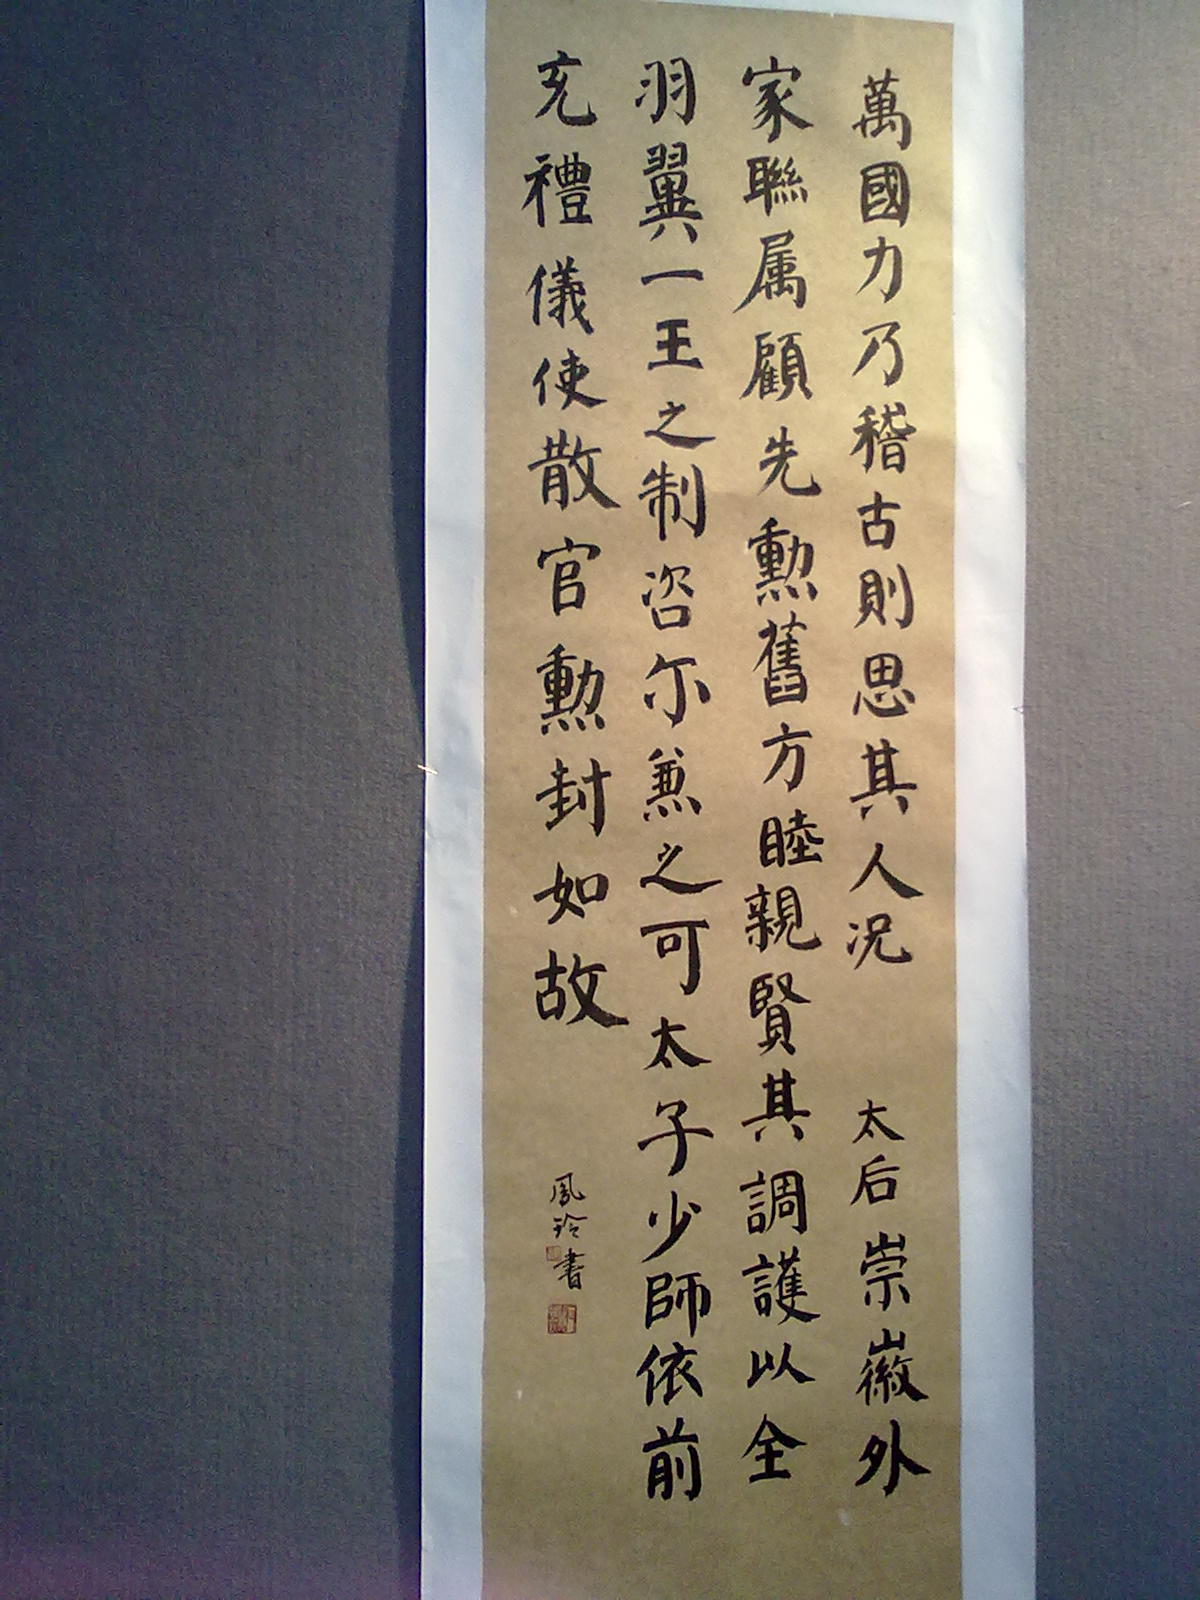 萬國力乃稽古則思其人况 太后崇徽外
家聯属顧先勳舊方睦親賢其調護以全
羽翼一王之制咨尓兼之可太子少師依前
充禮儀使散官勳封如故
鳳玲書